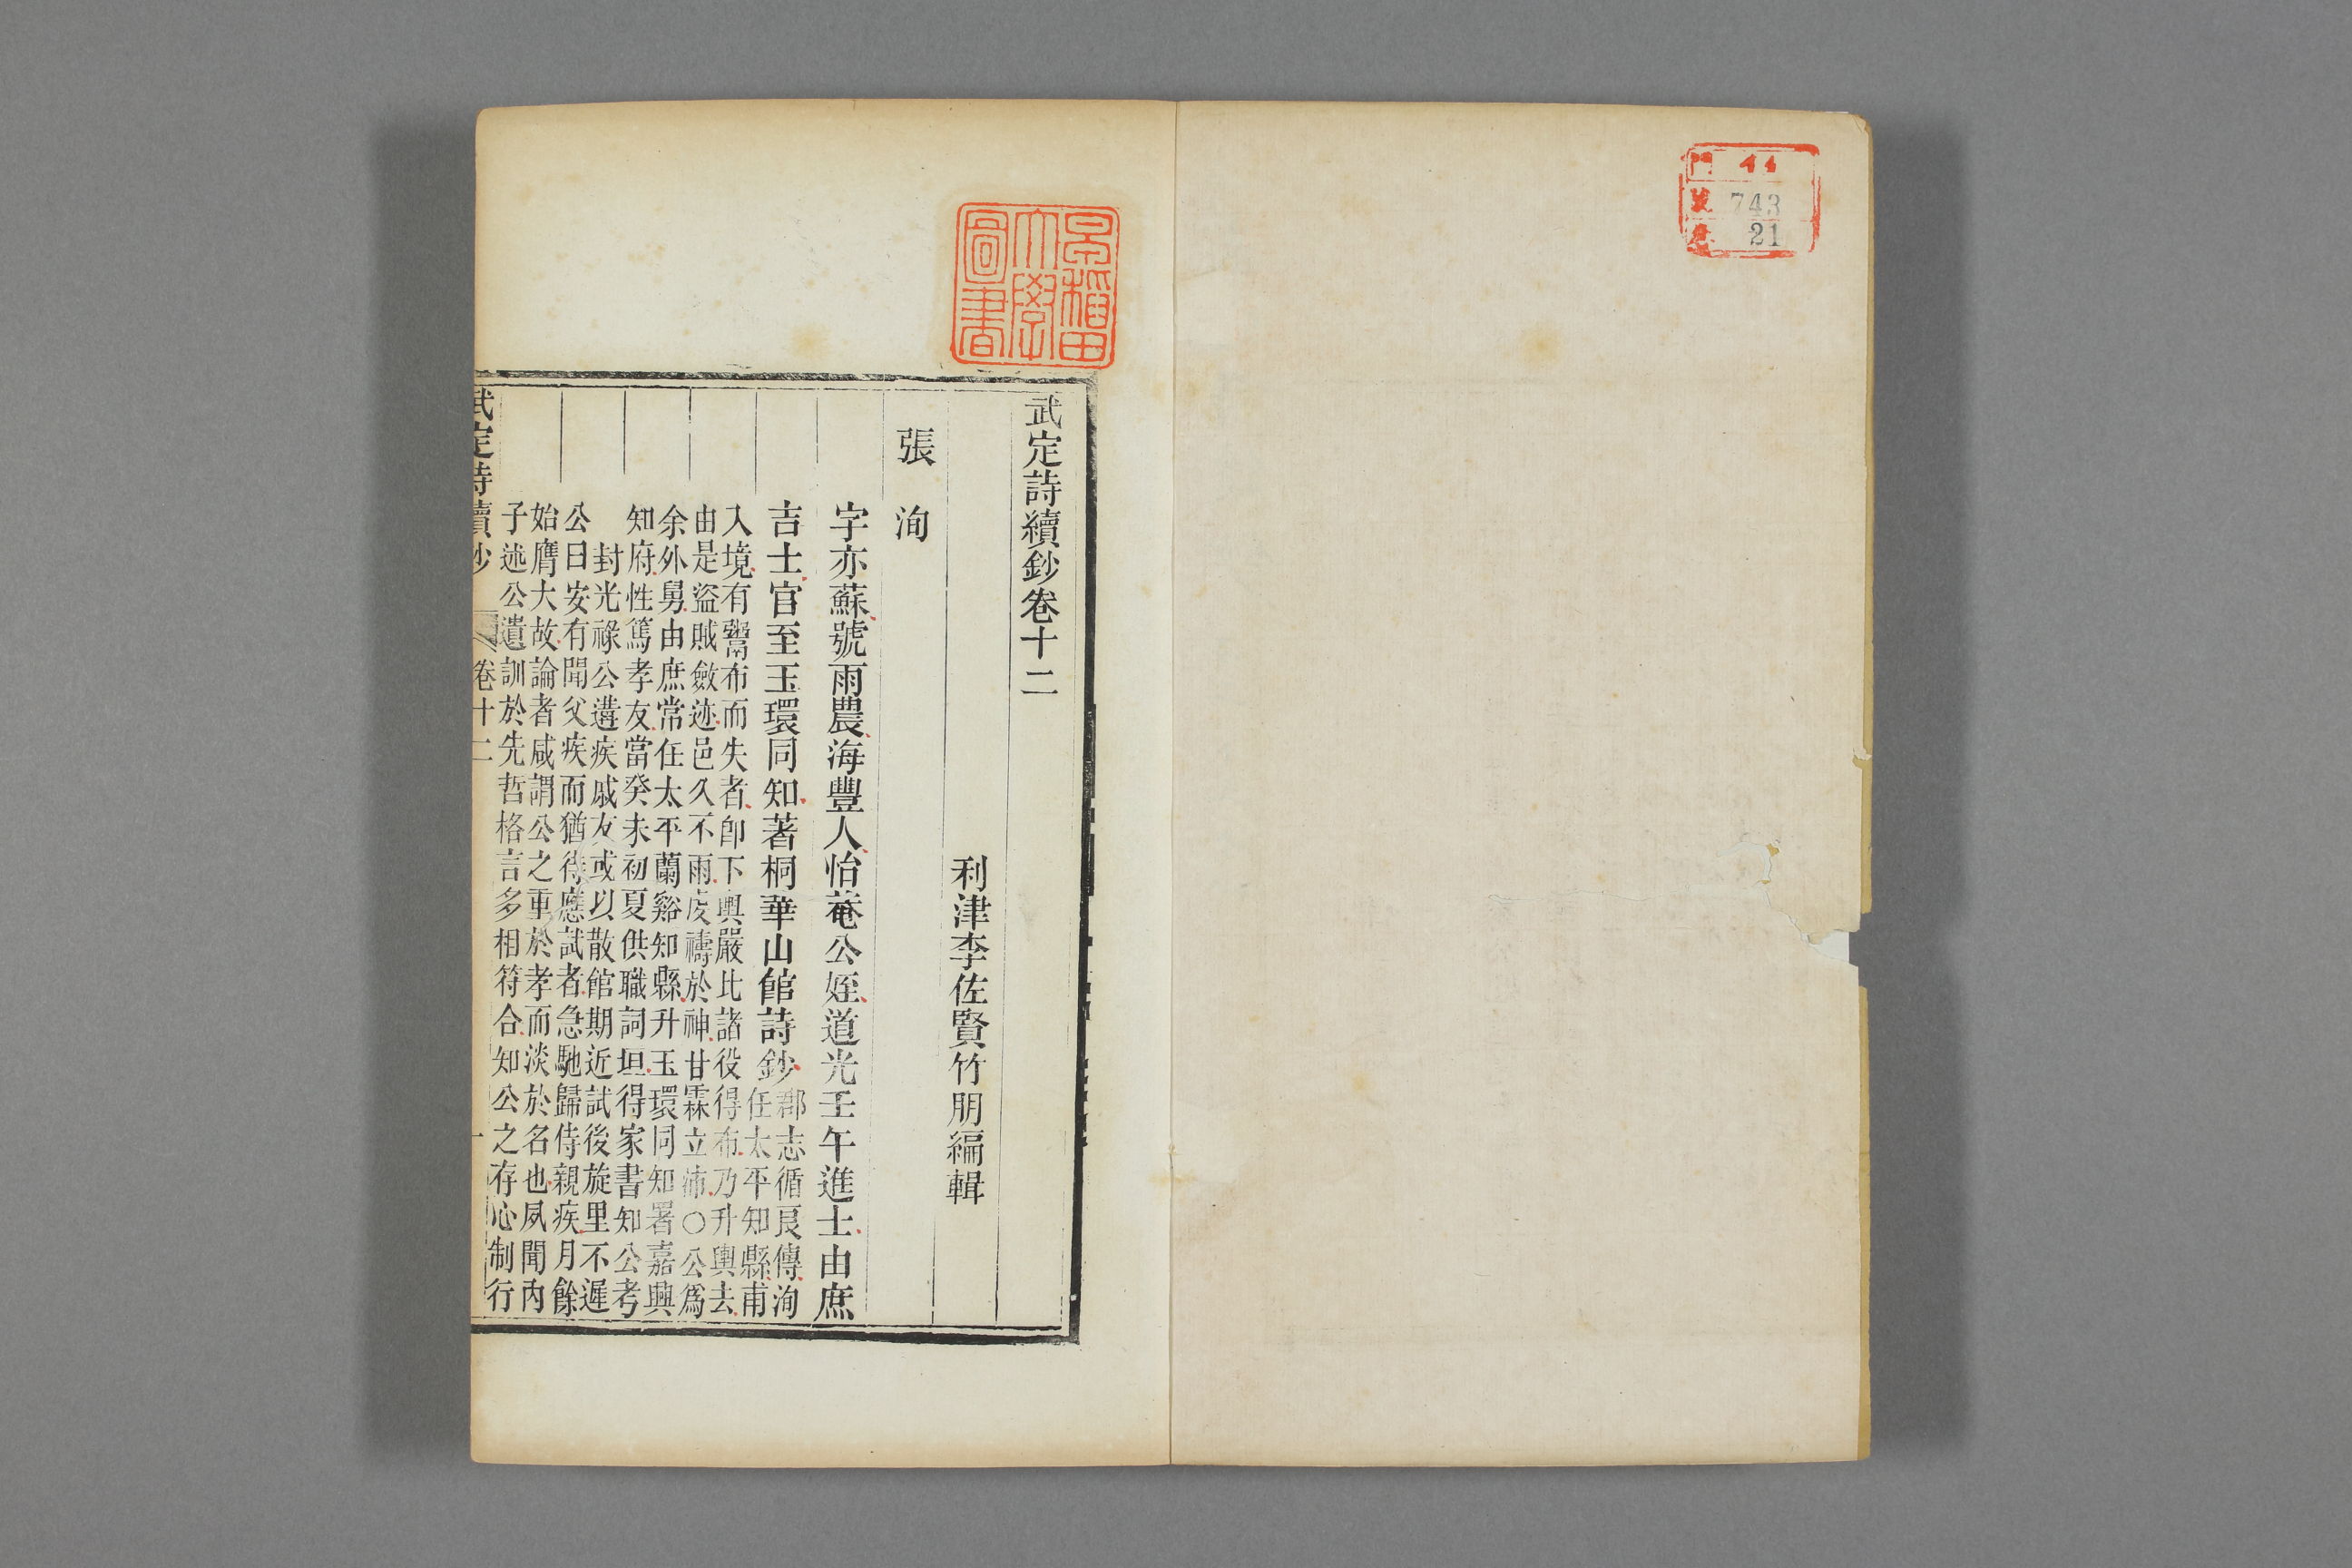 門 44
號 743
卷 21
早稲田
大學
圖書
武定詩續鈔卷十二
利津李佐賢竹朋編輯
張洵
字亦蘇號雨農海豐人怡菴公姪道光壬午進士由庶
吉士官至玉環同知著桐華山館詩鈔
郡志循良傳洵
任太平知縣甫
入境有鬻布而失者卽下輿嚴比諸役得布乃升輿去
由是盜賊斂迹邑久不雨虔禱於神甘霖立沛○公爲
余外舅由庶常任太平蘭谿知縣升玉環同知署嘉興
知府性篤孝友當癸未初夏供職詞垣得家書知公考
封光祿公遘疾戚友或以散館期近試後旋里不遲
公曰安有聞父疾而猶待應試者急馳歸侍親疾月餘
始膺大故論者咸謂公之重於孝而淡於名也夙聞內
子述公遺訓於先哲格言多相符合知公之存心制行
武定詩續鈔 卷十二 一